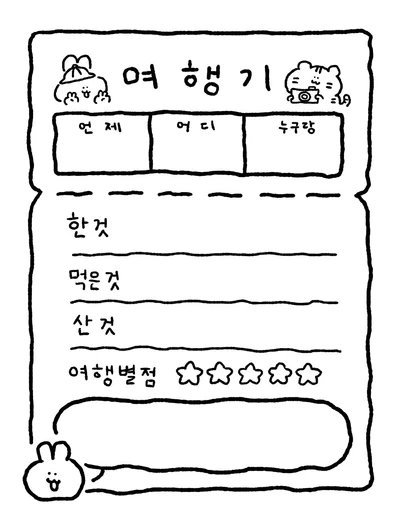 여행기
언제 어디 누구랑
한것
먹은것
산것
여행별점 ☆☆☆☆☆